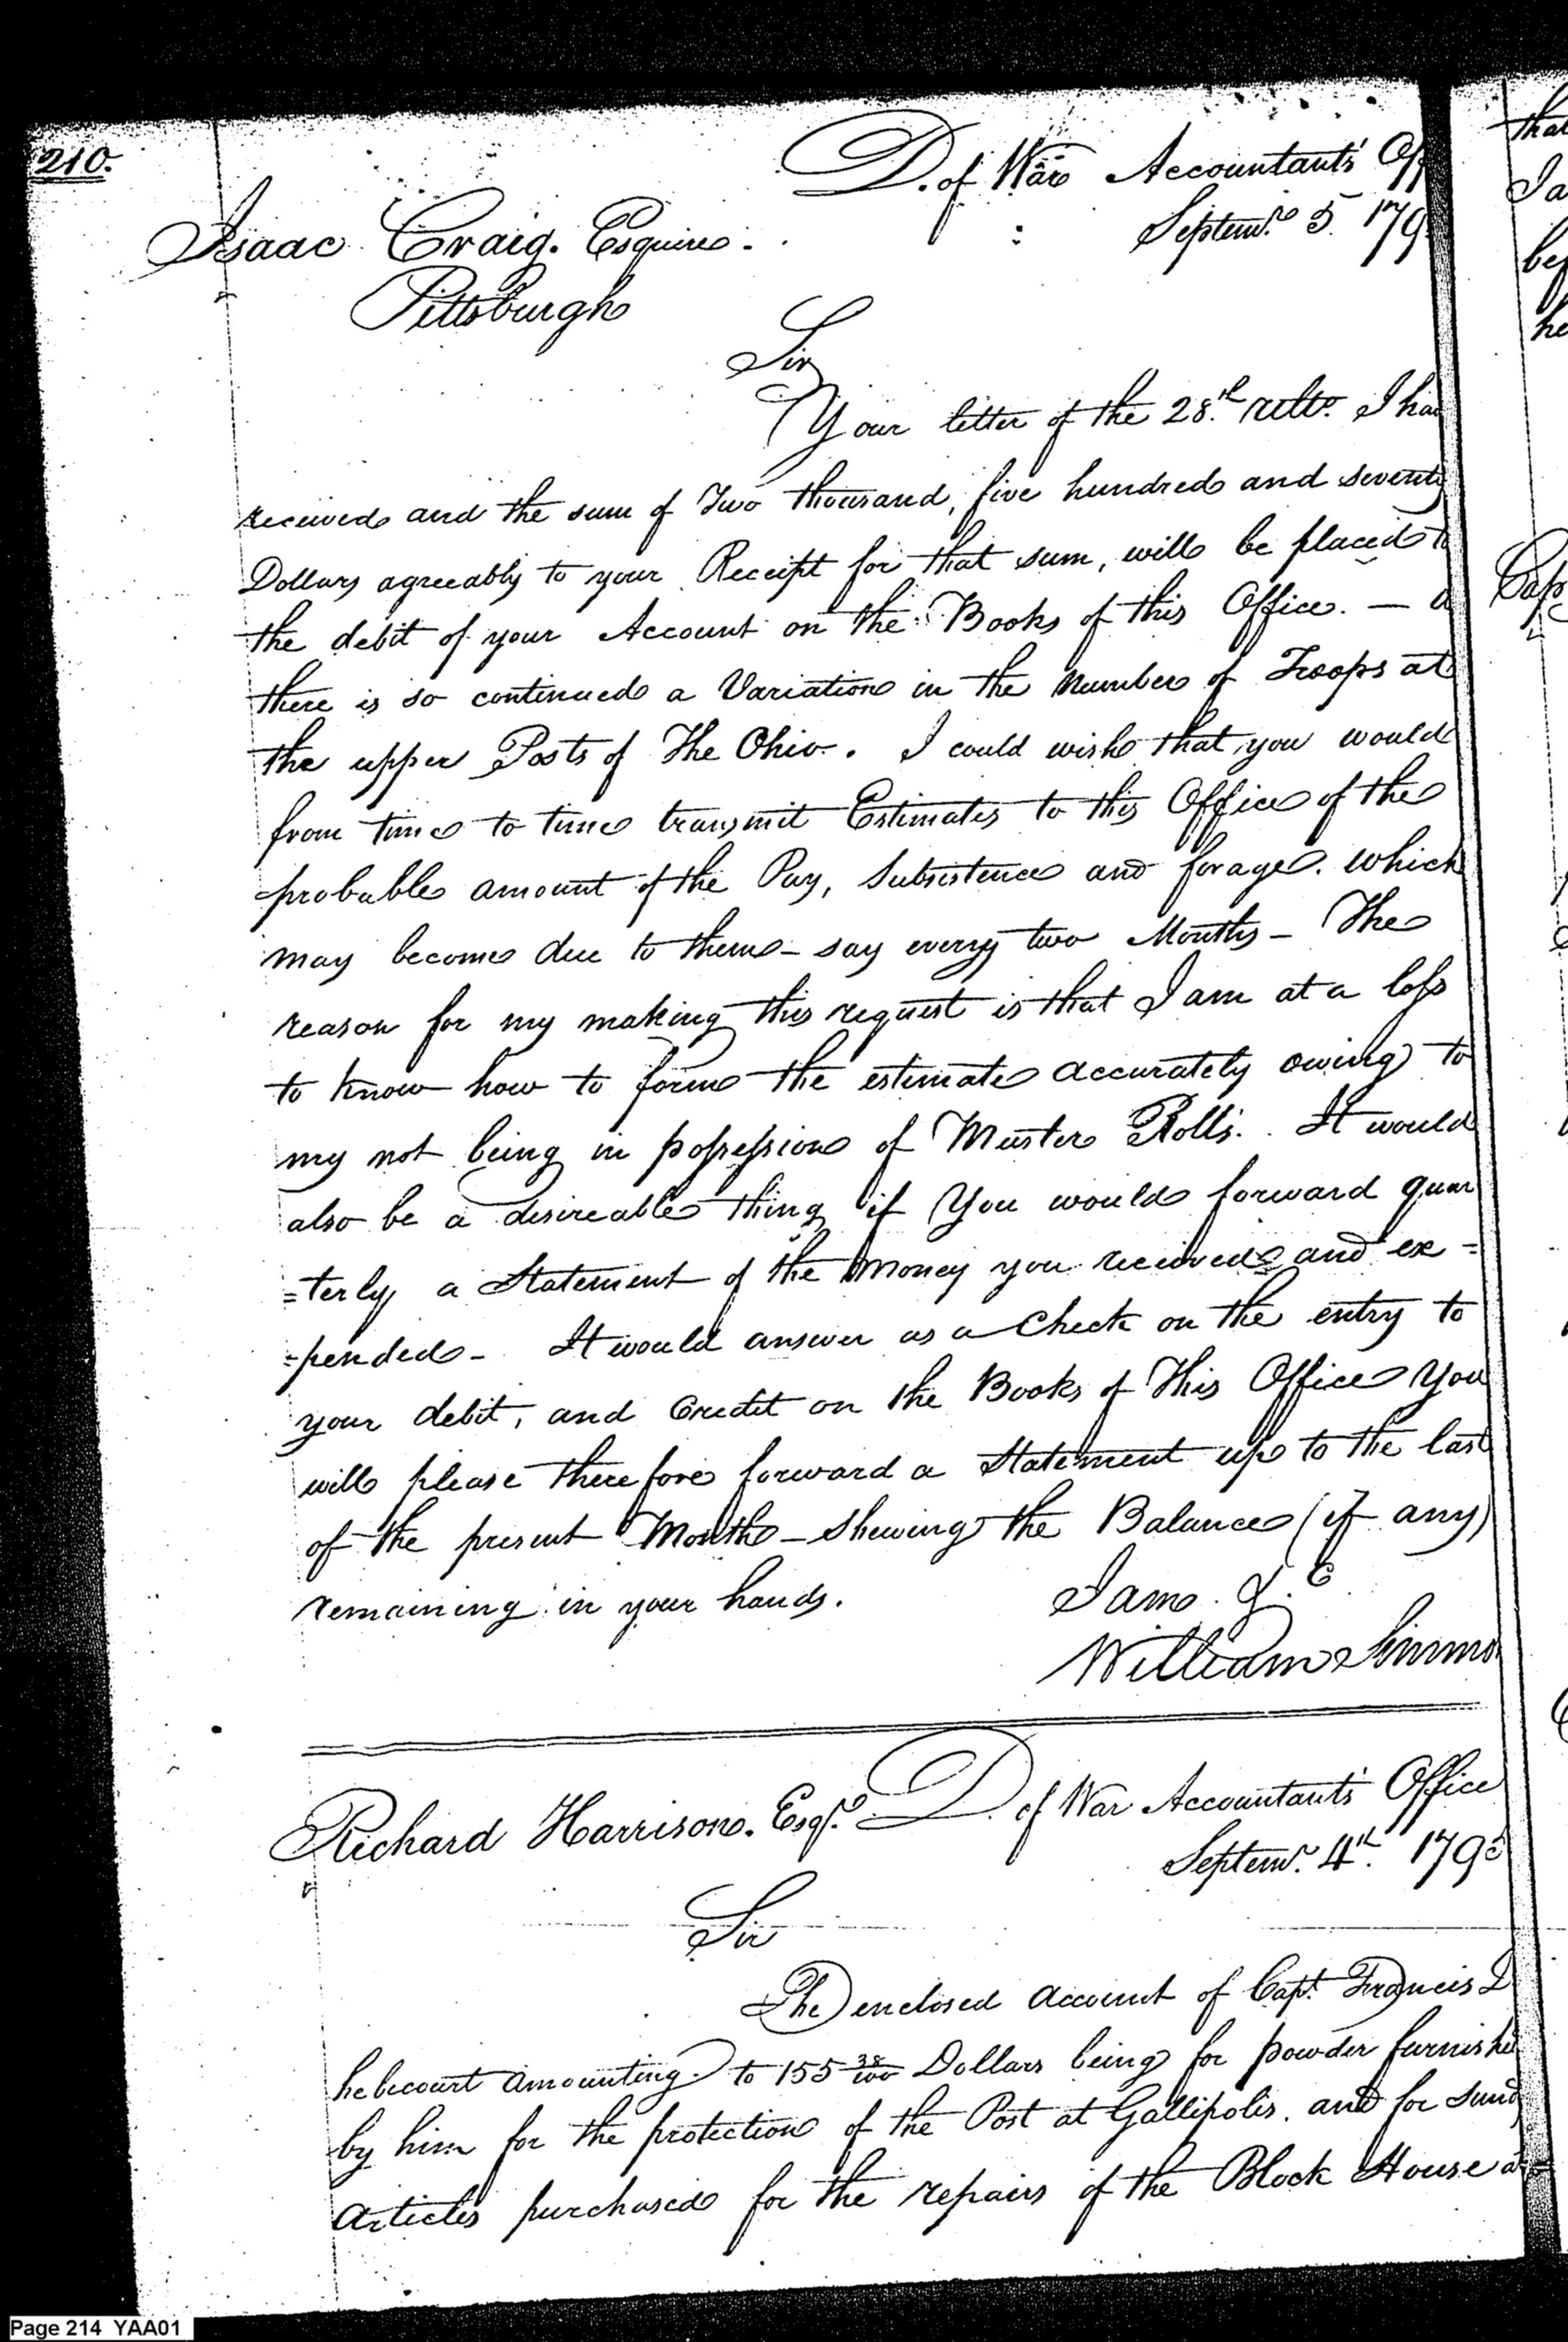 210.
D. of War Accountants' Off
Septemr. 5. 179
Isaac Craig. Esquire.
Pittsburgh
Sir
Your letter of the 28th. ulto. I hav
received and the sum of Two thousand, five hundred and seventy
Dollars agreeably to your Receipt for that sum, will be placed to
the debit of your Account on the Books of this Office. — a
there is so continued a Variation in the Number of Troops at
the upper Posts of The Ohio. I could wish that you would
from time to time transmit Estimates to this Office of the
probable amount of the Pay, Subsistence and forage. which
may become due to them - say every two Months - The
reason for my making this request is that I am at a loss
to know how to form the estimate accurately owing to
my not being in possession of Muster Rolls. It would
also be a desireable thing if You would forward quar
=terly a Statement of the Money you received and ex=
=pended - It would answer as a Check on the entry to
your debit, and Credit on the Books of This Office You
will please therefore forward a Statement up to the last
of the present Month - shewing the Balance (if any)
remaining in your hands.
I am. &.C
William Simmo
Richard Harrison. Esqr. D. of War Accountants' Office
Septemr. 4th. 1795
Sir
The enclosed account of Capt. Francis D
hebecourt amounting to 155 38/100 Dollars being for powder furnishe
by him for the protection of the Post at Gallipolis. and for Sund
Articles purchased for the repairs of the Block House a
that
I a
bef
he
Cap
Page 214 YAA01